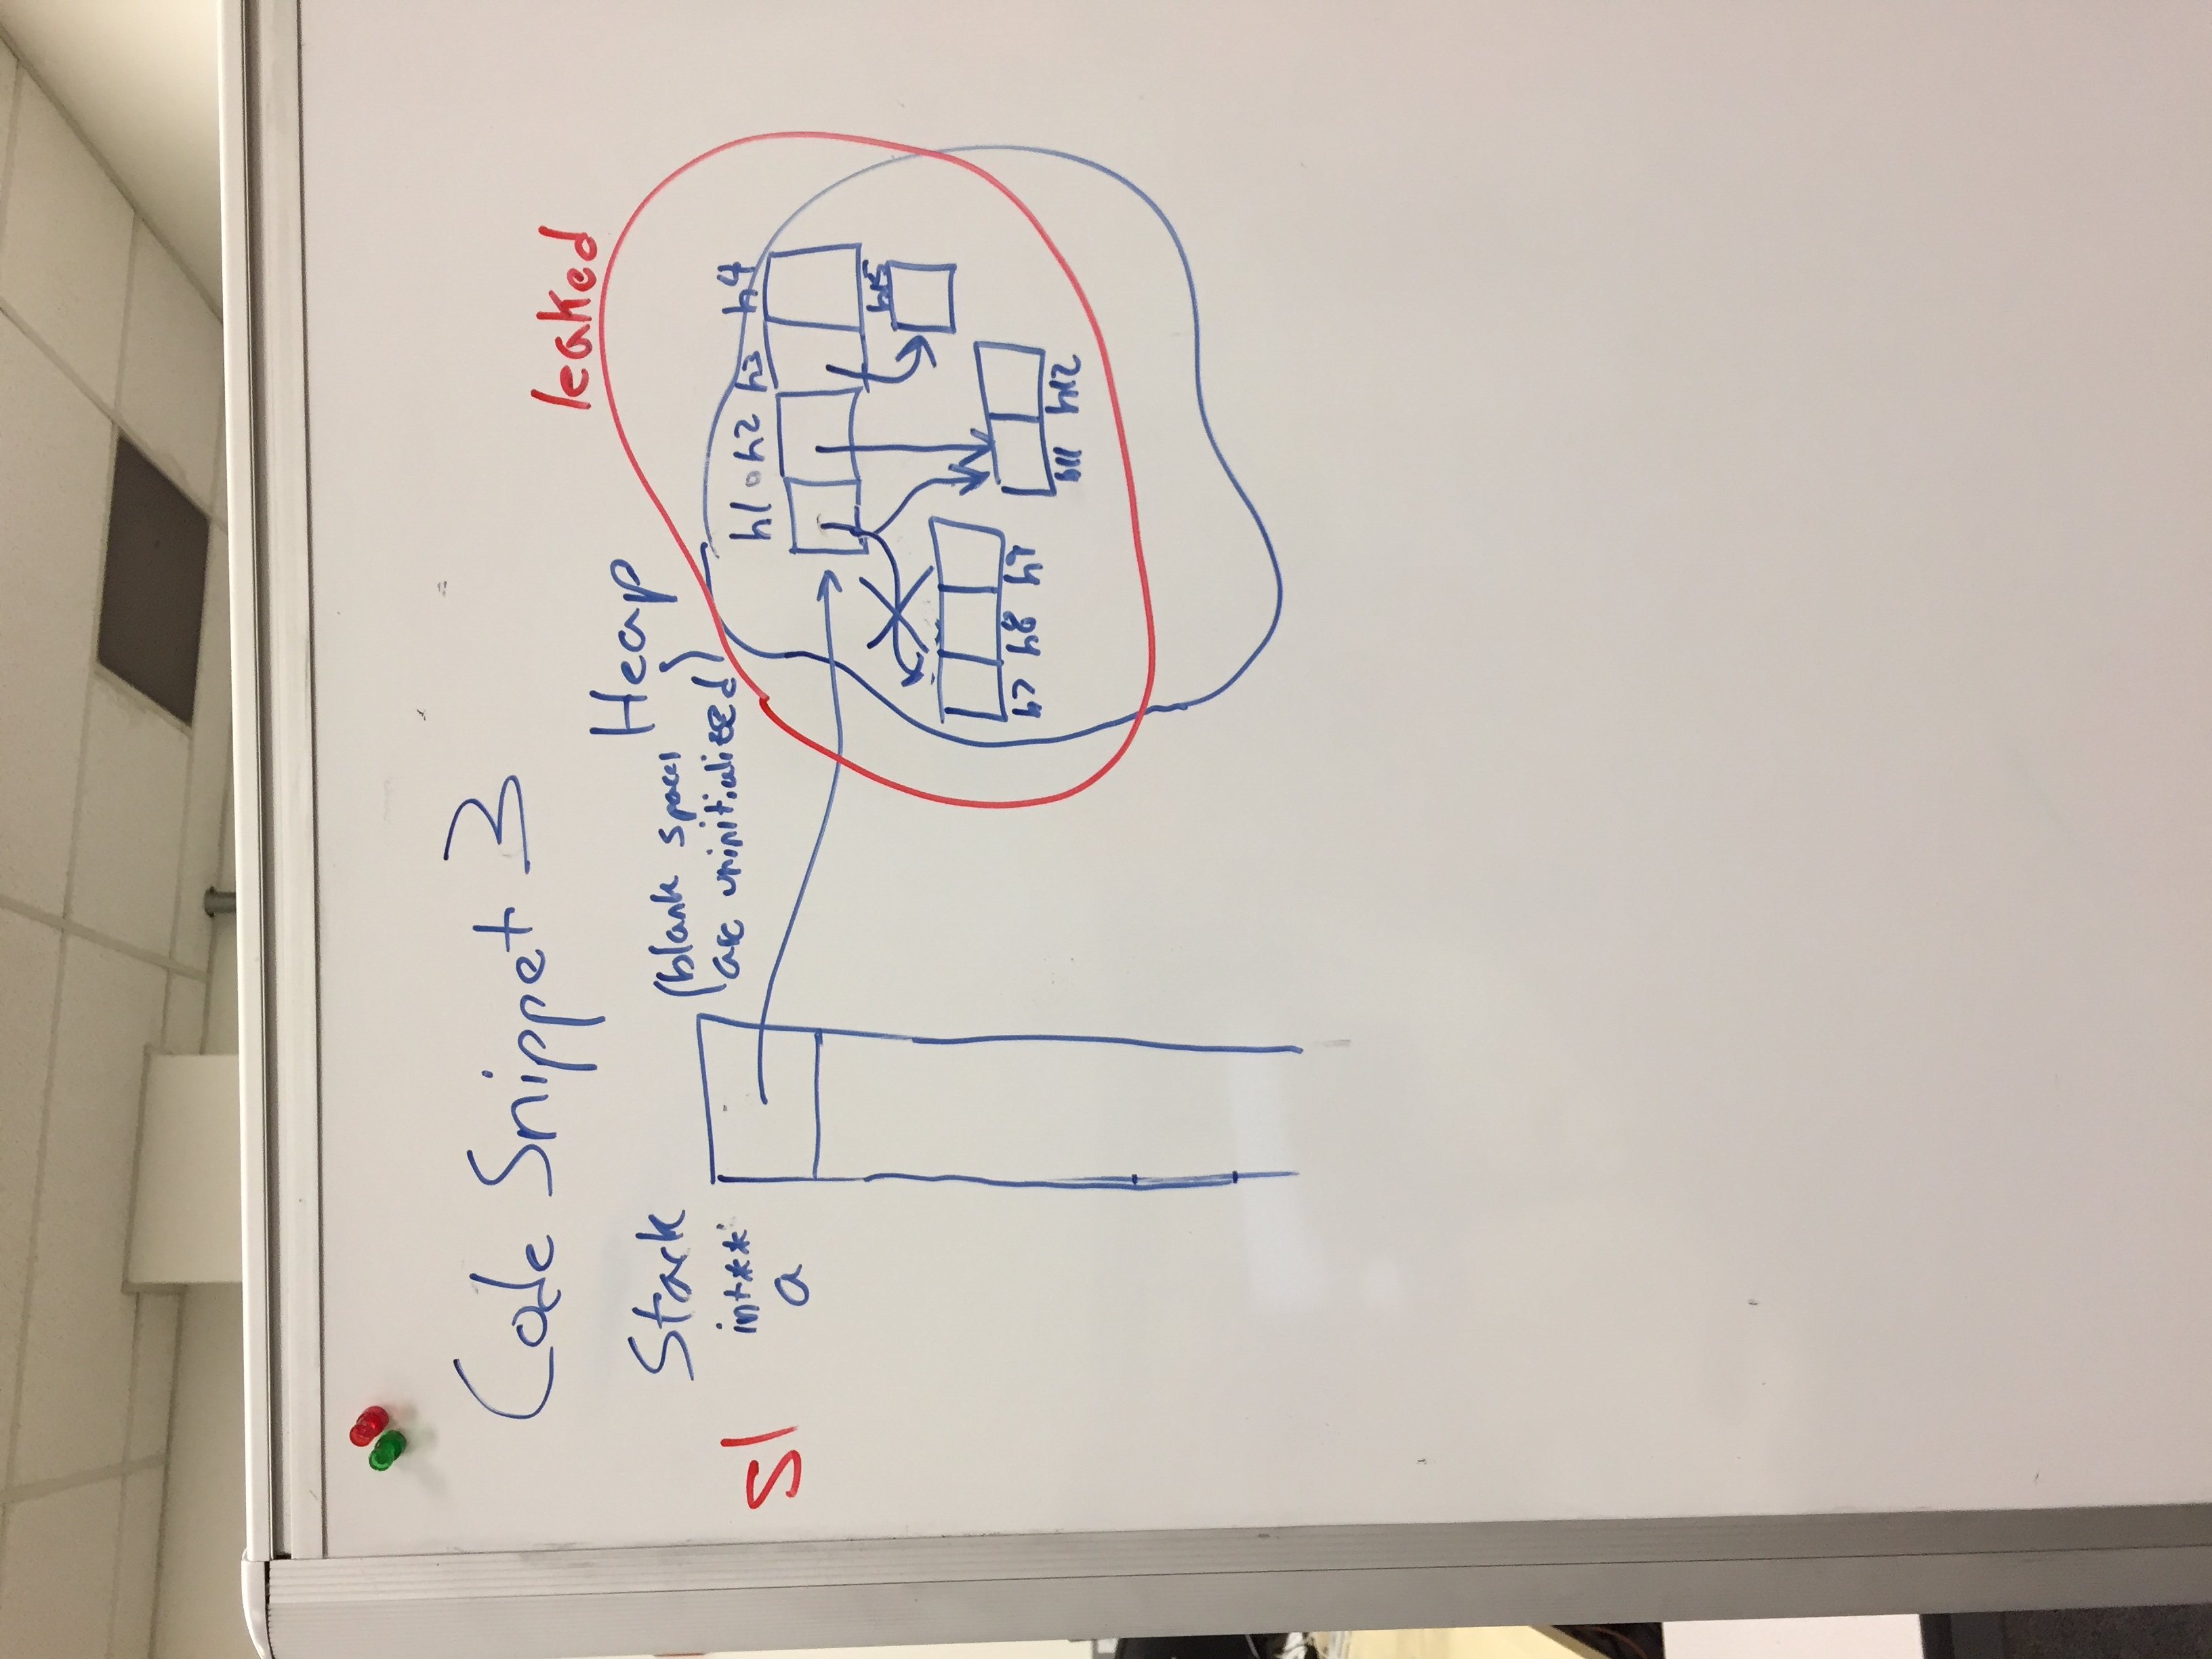 Code Snippet 3
leaked
Heap
Stack
(blank spaces
are uninitialized)
int**
a
s1
h1 h2 h3 h4
h15
h7 h8 h9
h11 h12